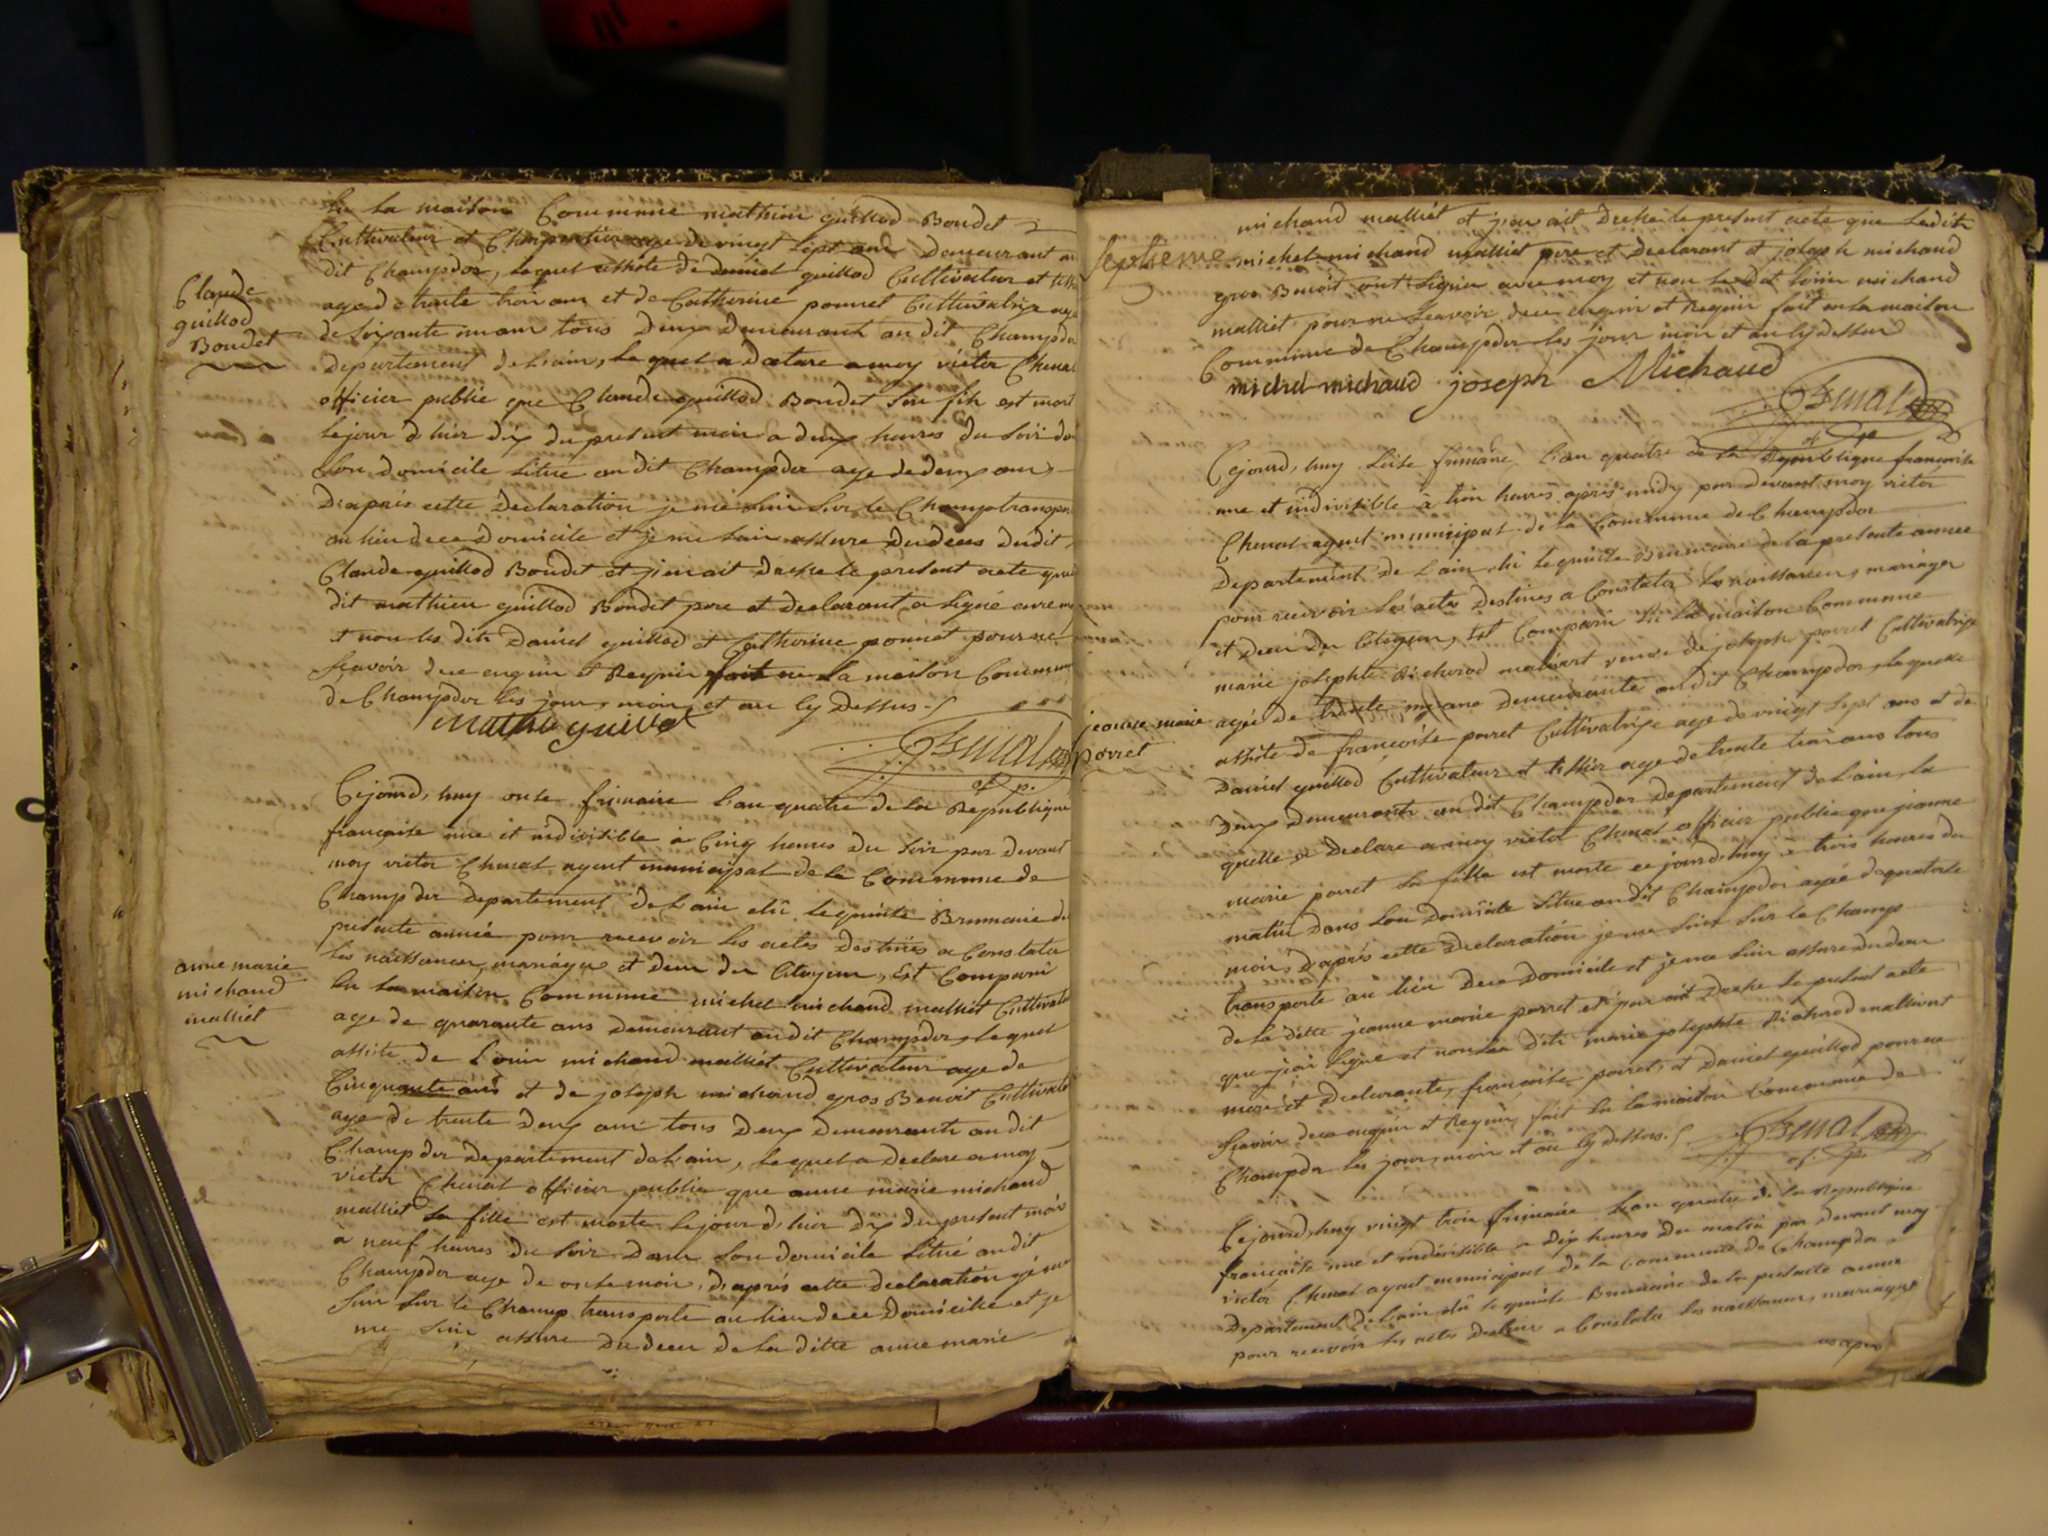 En la maison Commune mathieu guillod Boudet
Cultivateur et Charpentier age de vingt sept ans Demeurant au
dit Champdor, lequel assisté de daniel guillod Cultivateur et tissi
age de trente trois ans et de Catherine ponnet Cultivatrice age
Claude
guillod
Boudet
de soixante un ans tous Deux Demeurant au dit Champdor
Departement de Lain, lequel a Declare a moy victor Chenal
officier public que Claude guillod Boudet Son fils est mort
le jour d'hier dix du present mois a deux heures du Soir da
Son domicile Situé au dit Champdor age de deux ans
D'apres cette Declaration je me suis Sur le Champ transpor
au lieu de ce Domicile et je me suis assure Du deces Dudit
Claude guillod Boudet et j'en ait Dresse le present acte que
dit mathieu guillod Boudet pere et Declarant a Signé avec mo
et non les dits Daniel guillod et Catherine ponnet pour ne
Scavoir de ce enquis et Requis fait en la maison Commune
de Champdor les jour, mois et an cy Dessus
Mathie guillot
Chenal
of. p.
Cejourd'huy onse frimaire l'an quatre de La Republique
française une et indivisible à Cinq heures Du Soir par Devant
moy victor Chenal agent municipal de la Commune de
Champdor Departement De Lain elû le quinte Brumaire de
presente année pour recevoir les actes Destinés a Constater
anne marie
michaud
malliet
les naissances, mariages et deces des Citoyens, Est Comparu
En la maison Commune michel michaud malliet Cultivate
age de quarante ans Demeurant au dit Champdor, lequel
assisté de Louis michaud malliet Cultivateur age de
Cinquante ans et de joseph michaud gros Benoit Cultivate
age de trente Deux ans tous Deux Demeurants au dit
Champdor Departement de Lain, lequel a Declare a moy
victor Chenal officier public que anne marie michaud
malliet Sa fille est morte le jour d'hier dix du present mois
a neuf heures du Soir Dans Son domicile Situé au dit
Champdor age de onse mois, d'après cette declaration je me
Suis Sur le Champ transporte au lieu de ce Domicile et je
me Suis assure Du deces De la ditte anne marie
michaud malliet et j'en ait Dresse le present acte que Ledits
Septieme
michel michaud malliet pere et Declarant et joseph michaud
gros Benoit ont Signés avec moy et non Ledit Louis michaud
malliet pour ne Scavoir de ce enquis et Requis fait en la maison
Commune de Champdor les jour mois et an cy Dessus
michel michaud joseph Michaud
Chenal
of p.
Cejourd'huy Seise frimaire l'an quatre de la Republique françoise
une et indivisible à trois heures après midy par devant moy victor
Chenal agent municipal de la Commune de Champdor
Departement de Lain elû le quinte Brumaire de la presente année
pour recevoir les actes Destinés a Constater les naissances, mariages
et Deces Des Citoyens, Est Comparu En La maison Commune
marie josephte Richerod veuve de joseph porret Cultivatrice
jeanne marie
porret
agée de trente un ans Demeurante au dit Champdor, laquelle
assisté de françoise porret Cultivatrice age de vingt Sept ans et de
Daniel guillod Cultivateur et tissier age de trente trois ans tous
Deux demeurants au dit Champdor Departement de Lain, la
quelle a Declare a moy victor Chenal officier public que jeanne
marie porret Sa fille est morte ce jourd'huy à trois heures du
matin Dans Son Domicile Situe au dit Champdor agée de quatorse
mois, D'après cette Declaration je me Suis Sur le Champ
transporte au lieu De ce Domicile et je me Suis assure du deces
de la ditte jeanne marie porret et j'en ait Dresse le present acte
que j'ai Signé et non les dits marie josephte Richerod
mere et Declarante, françoise porret, et Daniel guillod pour ne
Scavoir de ce enquis et Requis, fait En La maison Commune de
Champdor les jour, mois et an cy dessus
Chenal
of. p.
Cejourd'huy vingt trois frimaire l'an quatre de la Republique
française une et indivisible a Dix heures du matin par devant moy
victor Chenal agent municipal de la Commune de Champdor
Departement De Lain elû le quinte Brumaire de la presente annee
pour recevoir les actes Destines a Constater les naissances, mariages